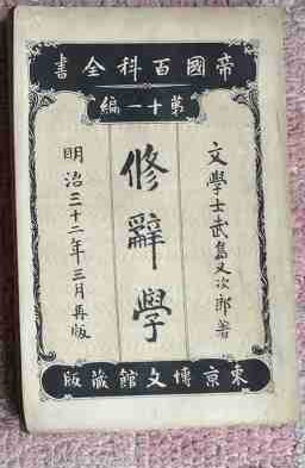 帝國百科全書
第十一編
文學士武島又次郎著
修辭學
明治三十二年三月再版
東京博文館藏版